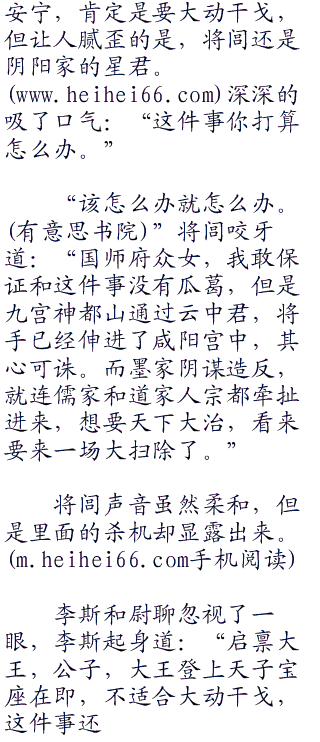 安宁，肯定是要大动干戈，
但让人腻歪的是，将闾还是
阴阳家的星君。
(www.heihei66.com)深深的
吸了口气：“这件事你打算
怎么办。”
“该怎么办就怎么办。
(有意思书院)”将闾咬牙
道：“国师府众女，我敢保
证和这件事没有瓜葛，但是
九宫神都山通过云中君，将
手已经伸进了咸阳宫中，其
心可诛。而墨家阴谋造反，
就连儒家和道家人宗都牵扯
进来，想要天下大治，看来
要来一场大扫除了。”
将闾声音虽然柔和，但
是里面的杀机却显露出来。
(m.heihei66.com手机阅读)
李斯和尉聊忽视了一
眼，李斯起身道：“启禀大
王，公子，大王登上天子宝
座在即，不适合大动干戈，
这件事还